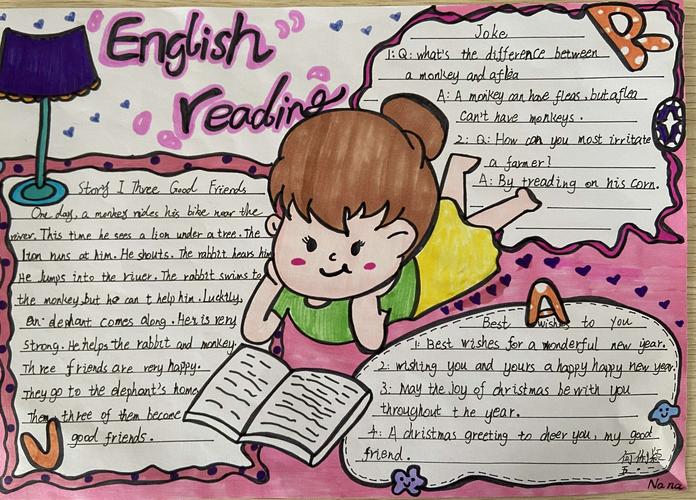 English
reading
Story 1 Three Good Friends
One day, a monkey rides his bike near the
river. This time he sees a lion under a tree. The
lion runs at him. He shouts. The rabbit hears him
He Jumps into the river. The rabbit swims to
the monkey, but he can t help him. Luckily,
an elephant comes along. He is very
strong. He helps the rabbit and monkey.
Three friends are very happy.
They go to the elephant's home
Then three of them become
good friends.
Joke
1: Q: what's the difference between
a monkey and a flea
A: A monkey can have fleas, but a flea
can't have monkeys.
2: Q: How can you most irritate
a farmer?
A: By treading on his corn.
Best wishes to you
1: Best wishes for a wonderful new year.
2: wishing you and yours a happy happy new year
3: May the Joy of christmas be with you
throughout the year.
4: A christmas greeting to cheer you, my good
friend.
Nana